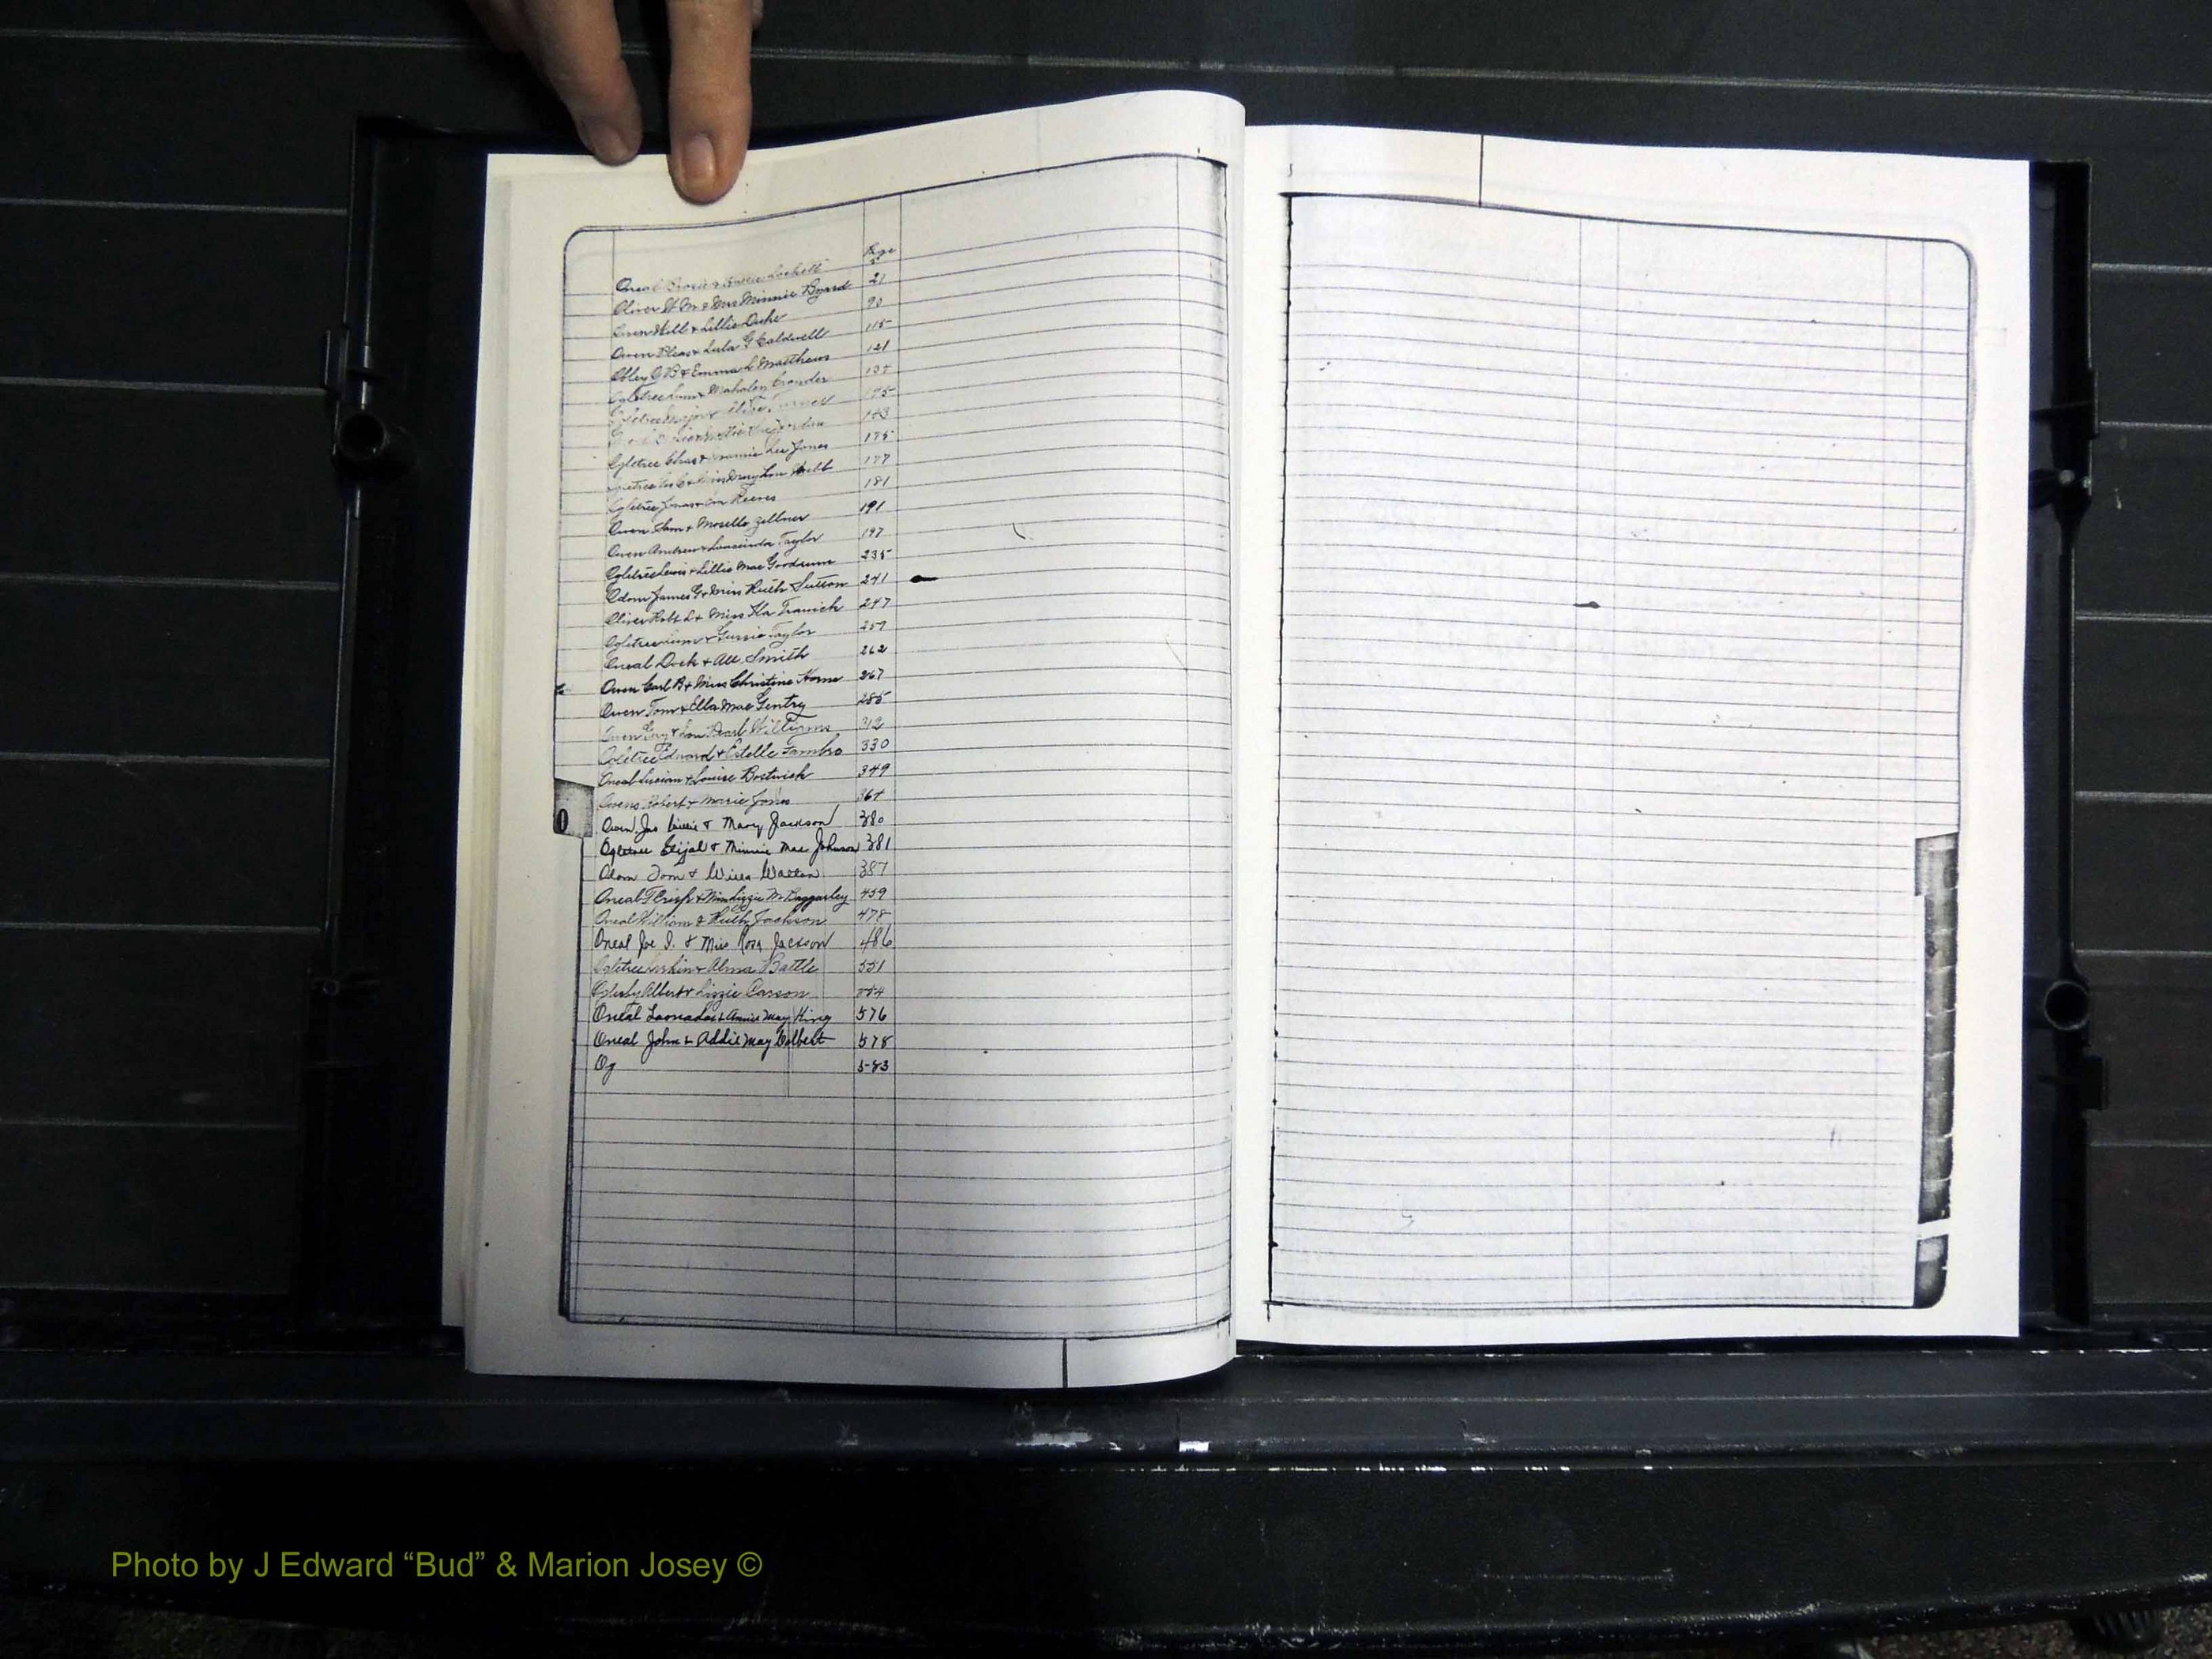 Page
Oneal & Lockett 5
Oliver W M & Mrs Minnie Byard 21
Owen Will & Lillie Duke 90
Owen Pleas & Lula G Caldwell 115
Obley O B & Emma L Matthews 121
Ogletree & Mahaley
Ogletree Major &
143
Ogletree Chas & Mamie Lee Jones 175
Ogletree & Miss Mary Lou Webb 177
Ogletree Jonas & Reeves 181
Owen Sam & Mosella Zellner 191
Owen Andrew & Taylor 197
Ogletree Lewis & Lillie Mae Goodrum 235
Odom James G & Miss Ruth Sutton 241
Oliver Robt L & Miss Ila Tranick 247
Ogletree & Gussie Taylor 257
Oneal Dock & All Smith 262
Owen Carl B & Miss Christine Horne 267
Owen Tom & Ella Mae Gentry 285
Owen Guy & Lou Pearl Williams 312
Ogletree Edward & Estelle Fambro 330
Oneal Lucian & Louise Bostwick 349
Owens Robert & Marie Jones 364
Owen, Jas Willie & Mary Jackson 380
O Ogletree Elijah & Minnie Mae Johnson 381
Odom Tom & Willa Walton 387
Oneal T Crisp & Miss Lizzie M Baggarley 459
Oneal William & Ruth Jackson 478
Oneal Joe I. & Miss Rosa Jackson 486
Ogletree & Alma Battle 551
Albert & Lizzie Carson 554
Oneal & Annie May King 576
Oneal John & Addie May Colbert 578
Og 583
Photo by J Edward “Bud” & Marion Josey ©